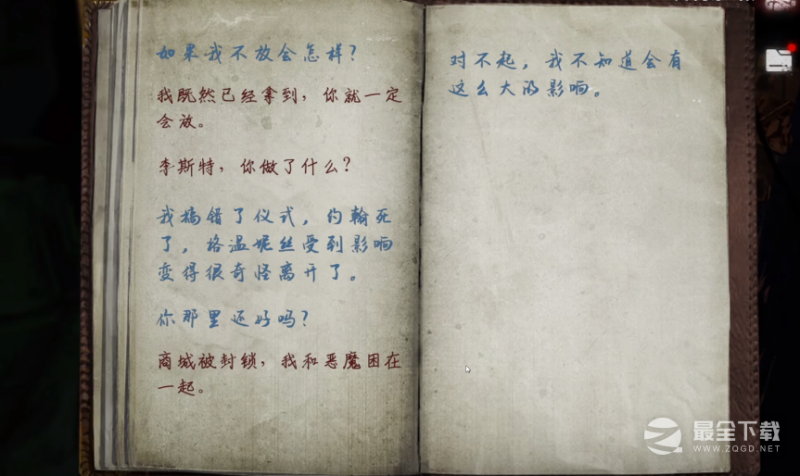 如果我不放会怎样？
我既然已经拿到，你就一定
会放。
李斯特，你做了什么？
我搞错了仪式，约翰死
了，格温妮丝受到影响
变得很奇怪离开了。
你那里还好吗？
商城被封锁，我和恶魔困在
一起。
对不起，我不知道会有
这么大的影响。
最全下载
WWW.ZQGD.NET